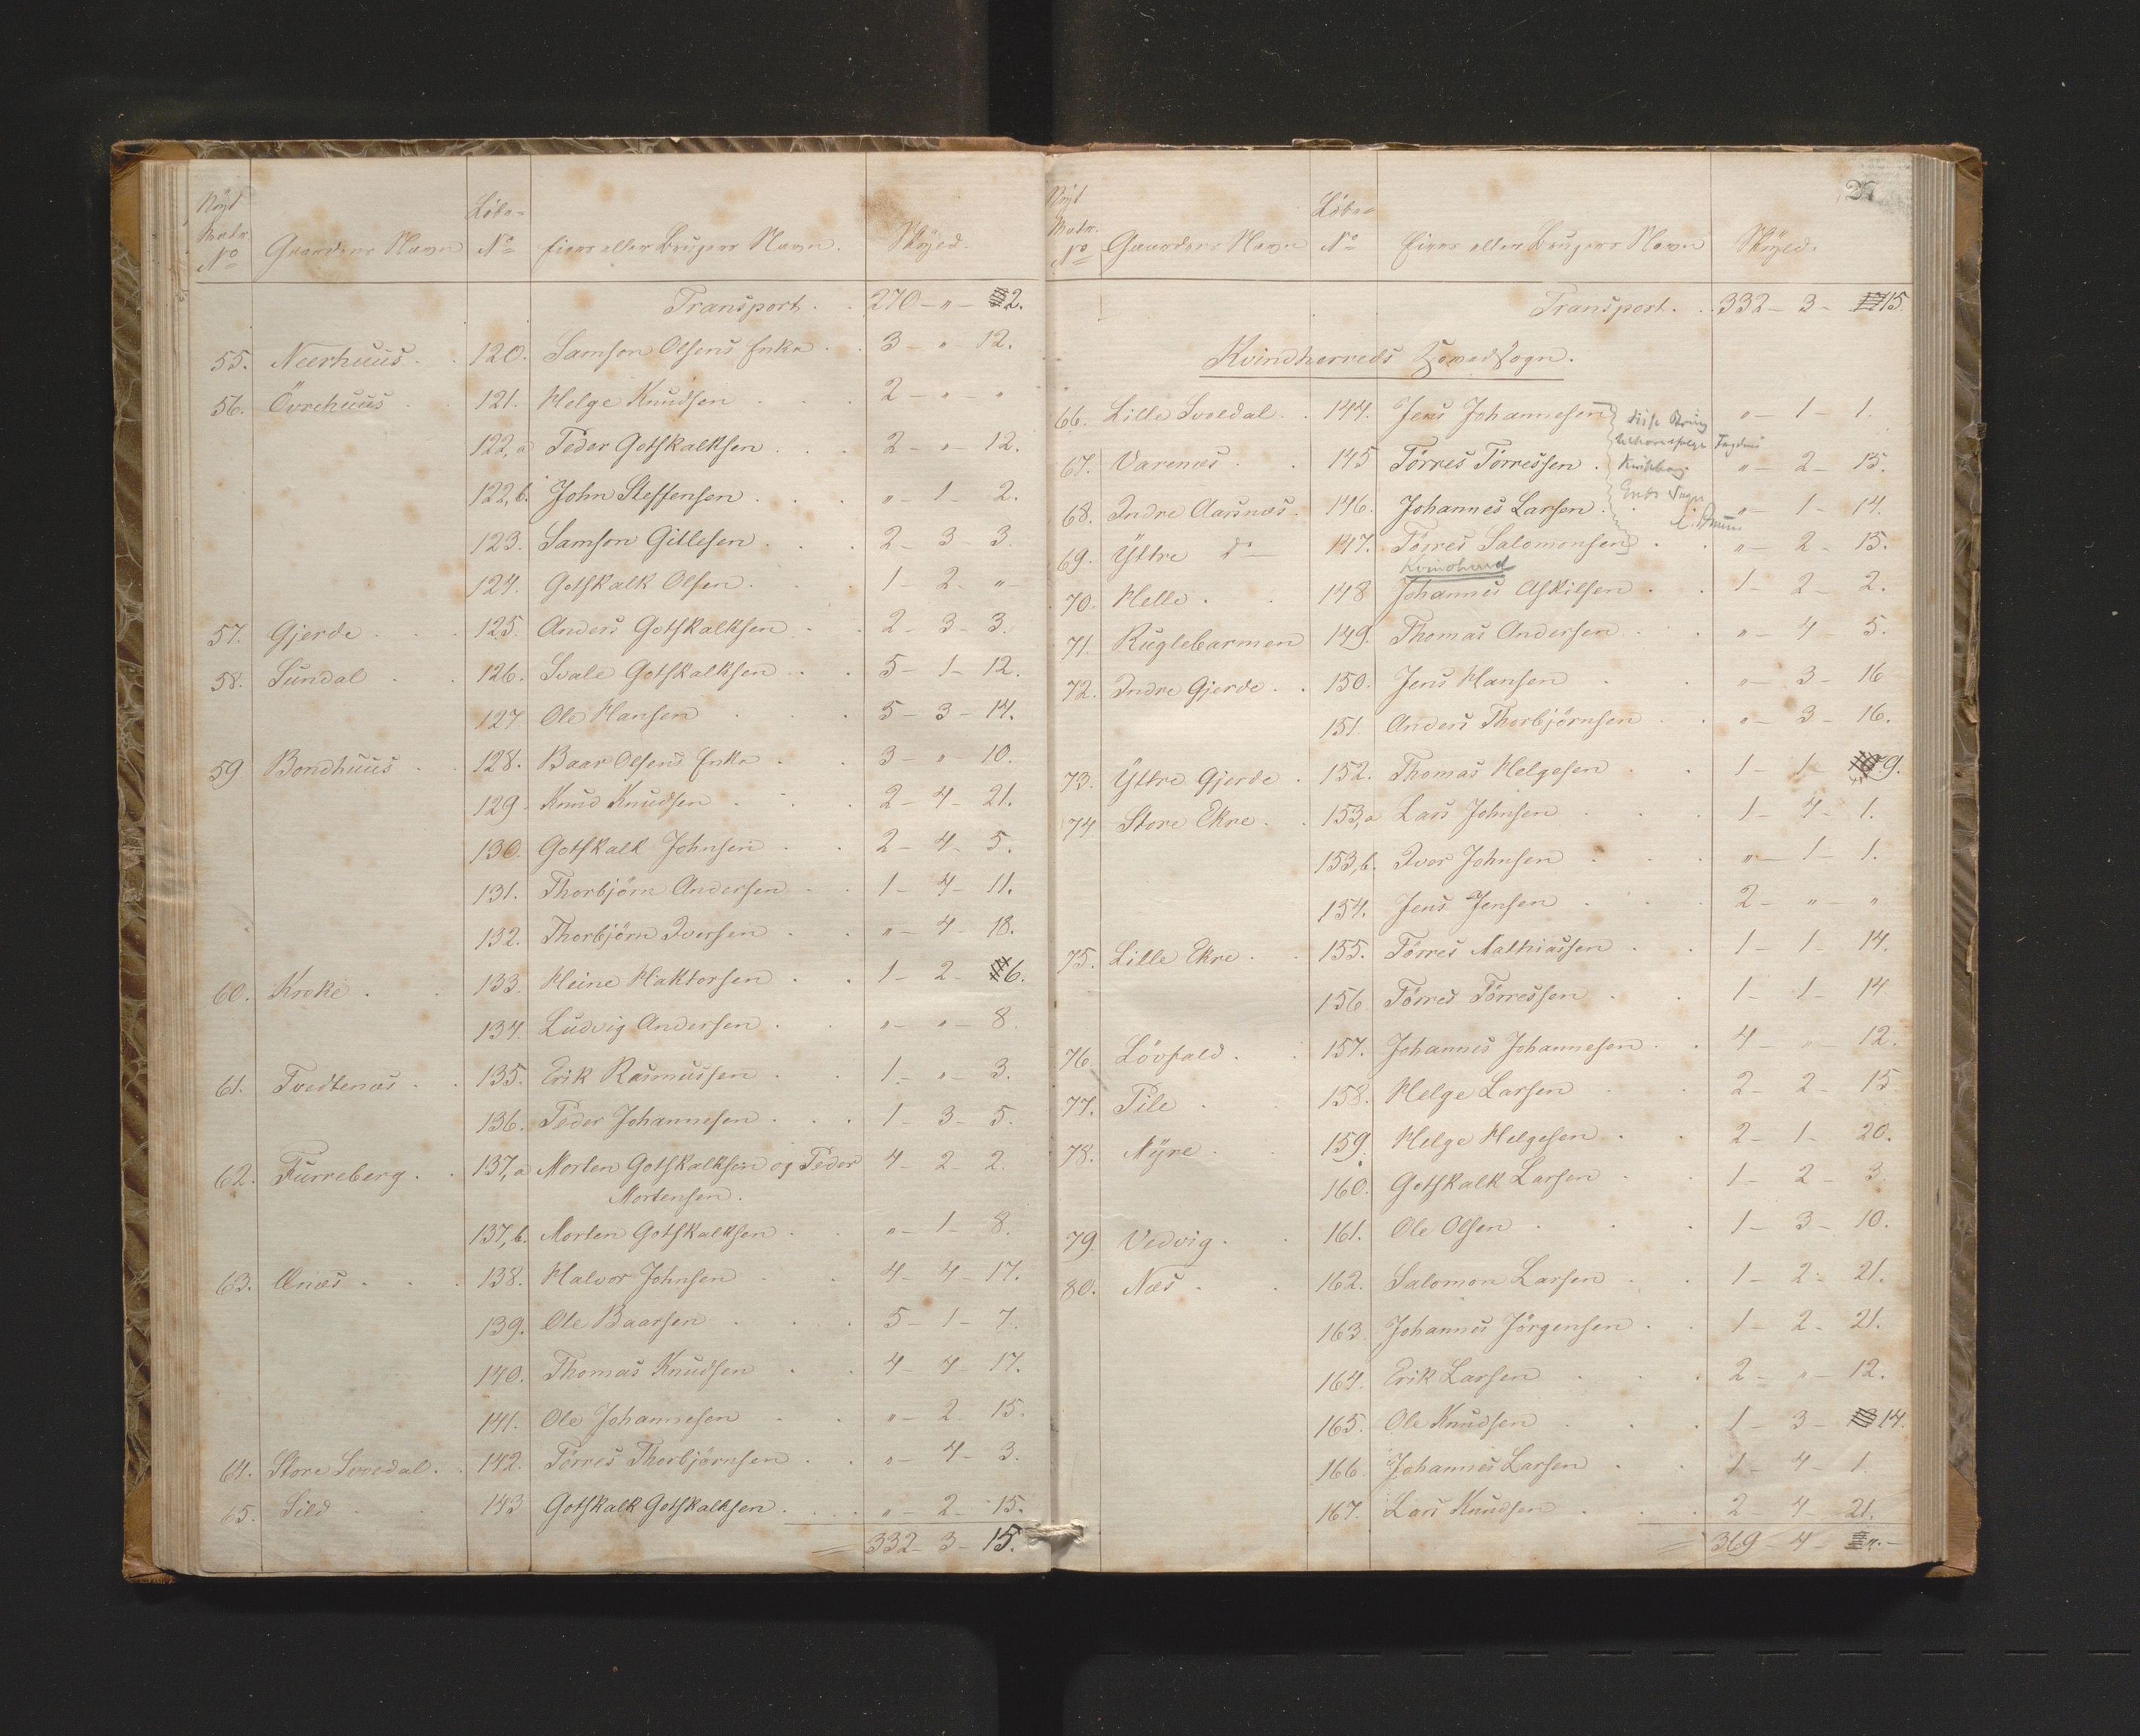 Nÿt Matr. No Gaardens Navn Löbe- No Eiers eller Brugers Navn. Skÿld.
Transport . . 270 - " - 2.
55. Neerhuus . . 120. Samson Olsens Enke . . 3 - " 12.
56. Övrehuus . . 121. Helge Knudsen . . . 2 - " "
122,a Peder Gotskalksen . . . 2 - " 12.
122,b. John Steffensen . . . " - 1 - 2.
123. Samson Gillesen . . . 2 - 3 - 3.
124. Gotskalk Olsen . . 1 - 2 - "
57. Gjerde . . . 125. Anders Gotskalksen . . 2 - 3 - 3.
58. Sundal . . 126. Svale Gotskalksen . . . 5 - 1 - 12.
127 Ole Hansen . . . 5 - 3 - 14.
59 Bondhuus . . 128. Baar Olsens Enke . . 3 - " - 10.
129. Knud Knudsen . . . 2 - 4 - 21.
130. Gotskalk Johnsen . . 2 - 4 - 5.
131. Thorbjörn Andersen . . 1 - 4 - 11.
132. Thorbjörn Iversen . . " - 4 - 18.
60. Kroke . . 133. Heine Haktorsen . . 1 - 2 - 6.
134. Ludvig Andersen . . " - " - 8.
61. Tvedtenæs . . 135. Erik Rasmussen . . 1 - " - 3.
136. Peder Johannesen . . . 1 - 3 - 5.
62. Furreberg . . 137,a Morten Gotskalksen og Peder 4 - 2 - 2.
Mortensen.
137,b. Morten Gotskalksen . . " - 1 - 8.
63. Ænæs . . . 138. Halvor Johnsen . . 4 - 4 - 17.
139. Ole Baarsen . . . 5 - 1 - 7.
140. Thomas Knudsen . . 4 - 4 - 17.
141. Ole Johannesen . . " - 2 - 15.
64. Store Svoedal . . 142. Törres Thorbjörnsen . . " - 4 - 3.
65. Sild . . 143 Gotskalk Gotskalksen . . . " - 2 - 15.
332 - 3 - 15.
Nÿt Matr. No Gaardens Navn Löbe- No Eiers eller Brugers Navn Skÿld.
Transport . . 332 - 3 - 15.
Kvindherreds Hovedsogn.
66. Lille Svoedal . . 144. Jens Johannesen " - 1 - 1.
67. Varenæs . . 145 Törres Törressen . " - 2 - 15.
68. Indre Aarsnæs . 146. Johannes Larsen . . " - 1 - 14.
69. Ÿttre do 147. Törres Salomonsen . . " - 2 - 15.
Kvindherred
70. Helle . . 148 Johannes Askilsen . . 1 - 2 - 2.
71. Kuglebarmen 149. Thomas Andersen . . " - 4 - 5.
72. Indre Gjerde . . 150. Jens Hansen . . " - 3 - 16
151. Anders Thorbjörnsen . . " - 3 - 16.
73. Ÿttre Gjerde . 152. Thomas Helgesen . . 1 - 1 - 9.
74 Store Ekre . . 153,a Lars Johnsen . . . 1 - 4 - 1.
153,b. Iver Johnsen . . . " - 1 - 1.
154. Jens Jensen . . . 2 - " - "
75. Lille Ekre . . 155. Törres Mathiassen . . 1 - 1 - 14.
156 Törres Törressen . . 1 - 1 - 14
76. Lövfald . . 157. Johannes Johannesen . . 4 - " - 12.
77. Pile . 158. Helge Larsen . . 2 - 2 - 15
78. Nÿre . . 159. Helge Helgesen . . 2 - 1 - 20.
160. Gotskalk Larsen . . 1 - 2 - 3
79. Vedvig . . 161. Ole Olsen . . . 1 - 3 - 10.
80. Næs . . 162. Salomon Larsen . . 1 - 2 - 21.
163 Johannes Jörgensen . . 1 - 2 - 21.
164. Erik Larsen . . . 2 - " - 12.
165. Ole Knudsen . . . 1 - 3 - 14.
166. Johannes Larsen . . 1 - 4 - 1.
167. Lars Knudsen . . . 2 - 4 - 21.
369 - 4 - ".